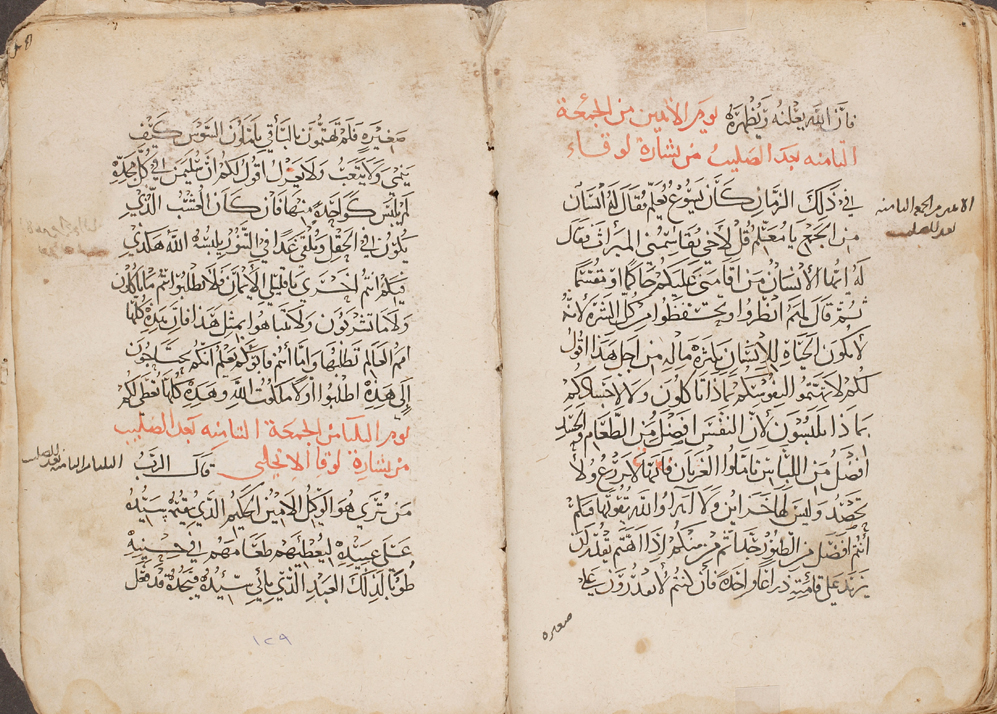 فان الله يعلنه ويظهره يوم الاثنين من الجمعة
الثامنه بعد الصليب من بشارة لوقاء
في ذلك الزمان كان يسوع يعلم فقال له انسان
من الجمع يا معلم قل لاخي يقاسمني الميراث فقال
له ايها الانسان من اقامني عليكم حاكما او مقسما
ثم قال لهم انظروا وتحتفظوا من كل الشره لانه
لا تكون الحياه للانسان بكثرة ماله من اجل هذا اقول
لكم لا تهتموا لنفوسكم بماذا تاكلون ولا لاجسادكم
بماذا تلبسون لان النفس افضل من الطعام والجسد
افضل من اللباس تاملوا الغربان فانها لا تزرع ولا
تحصد وليس لها خزاين ولا اهرا والله يقوتها فكم
انتم افضل من الطيور خاصا من منكم اذا اهتم يقدر ان
يزيد على قامته ذراعا واحده فان كنتم لا تقدرون على
صغيره
الاثنين من الجمعه الثامنه
بعد الصليب
صغيره فلم تهتمون بالباقي تاملوا السوسن كيف
ينمي ولا يتعب ولا يغزل اقول لكم ان سليمن في كل مجده
لم يلبس كواحدة منها فان كان العشب الذي
يكون في الحقل ويلقى غدا في التنور يلبسه الله هكذي
فبكم انتم احرى يا قليلي الايمان فلا تطلبوا انتم ما تاكلون
ولا ما تشربون ولا تتباهوا بمثل هذا فان هذه كلها
امم العالم تطلبها واما انتم فابوكم يعلم انكم تحتاجون
الى هذه اطلبوا اولا ملكوت الله وهذه كلها تعطى لكم
يوم الثلثا من الجمعة الثامنه بعد الصليب
من بشارة لوقا الانجيلي قال الرب
الثلثا الثامنه بعد الصليب
من تري هو الوكيل الامين الحكيم الذي يقيمه سيده
على عبيده ليعطيهم طعامهم في حينه
طوبا لذلك العبد الذي ياتي سيده فيجده قد فعل
١٢٩